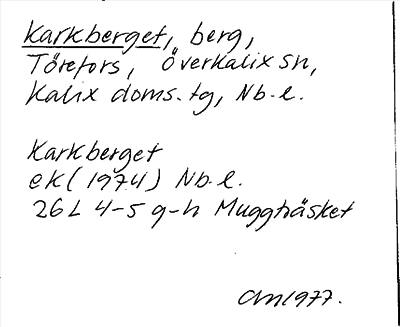 Karkberget, berg,
Törefors, Överkalix sn,
Kalix doms. tg, Nb. l.
Karkberget
ek (1974) Nb. l.
26L 4-5 g-h Muggträsket
1977.